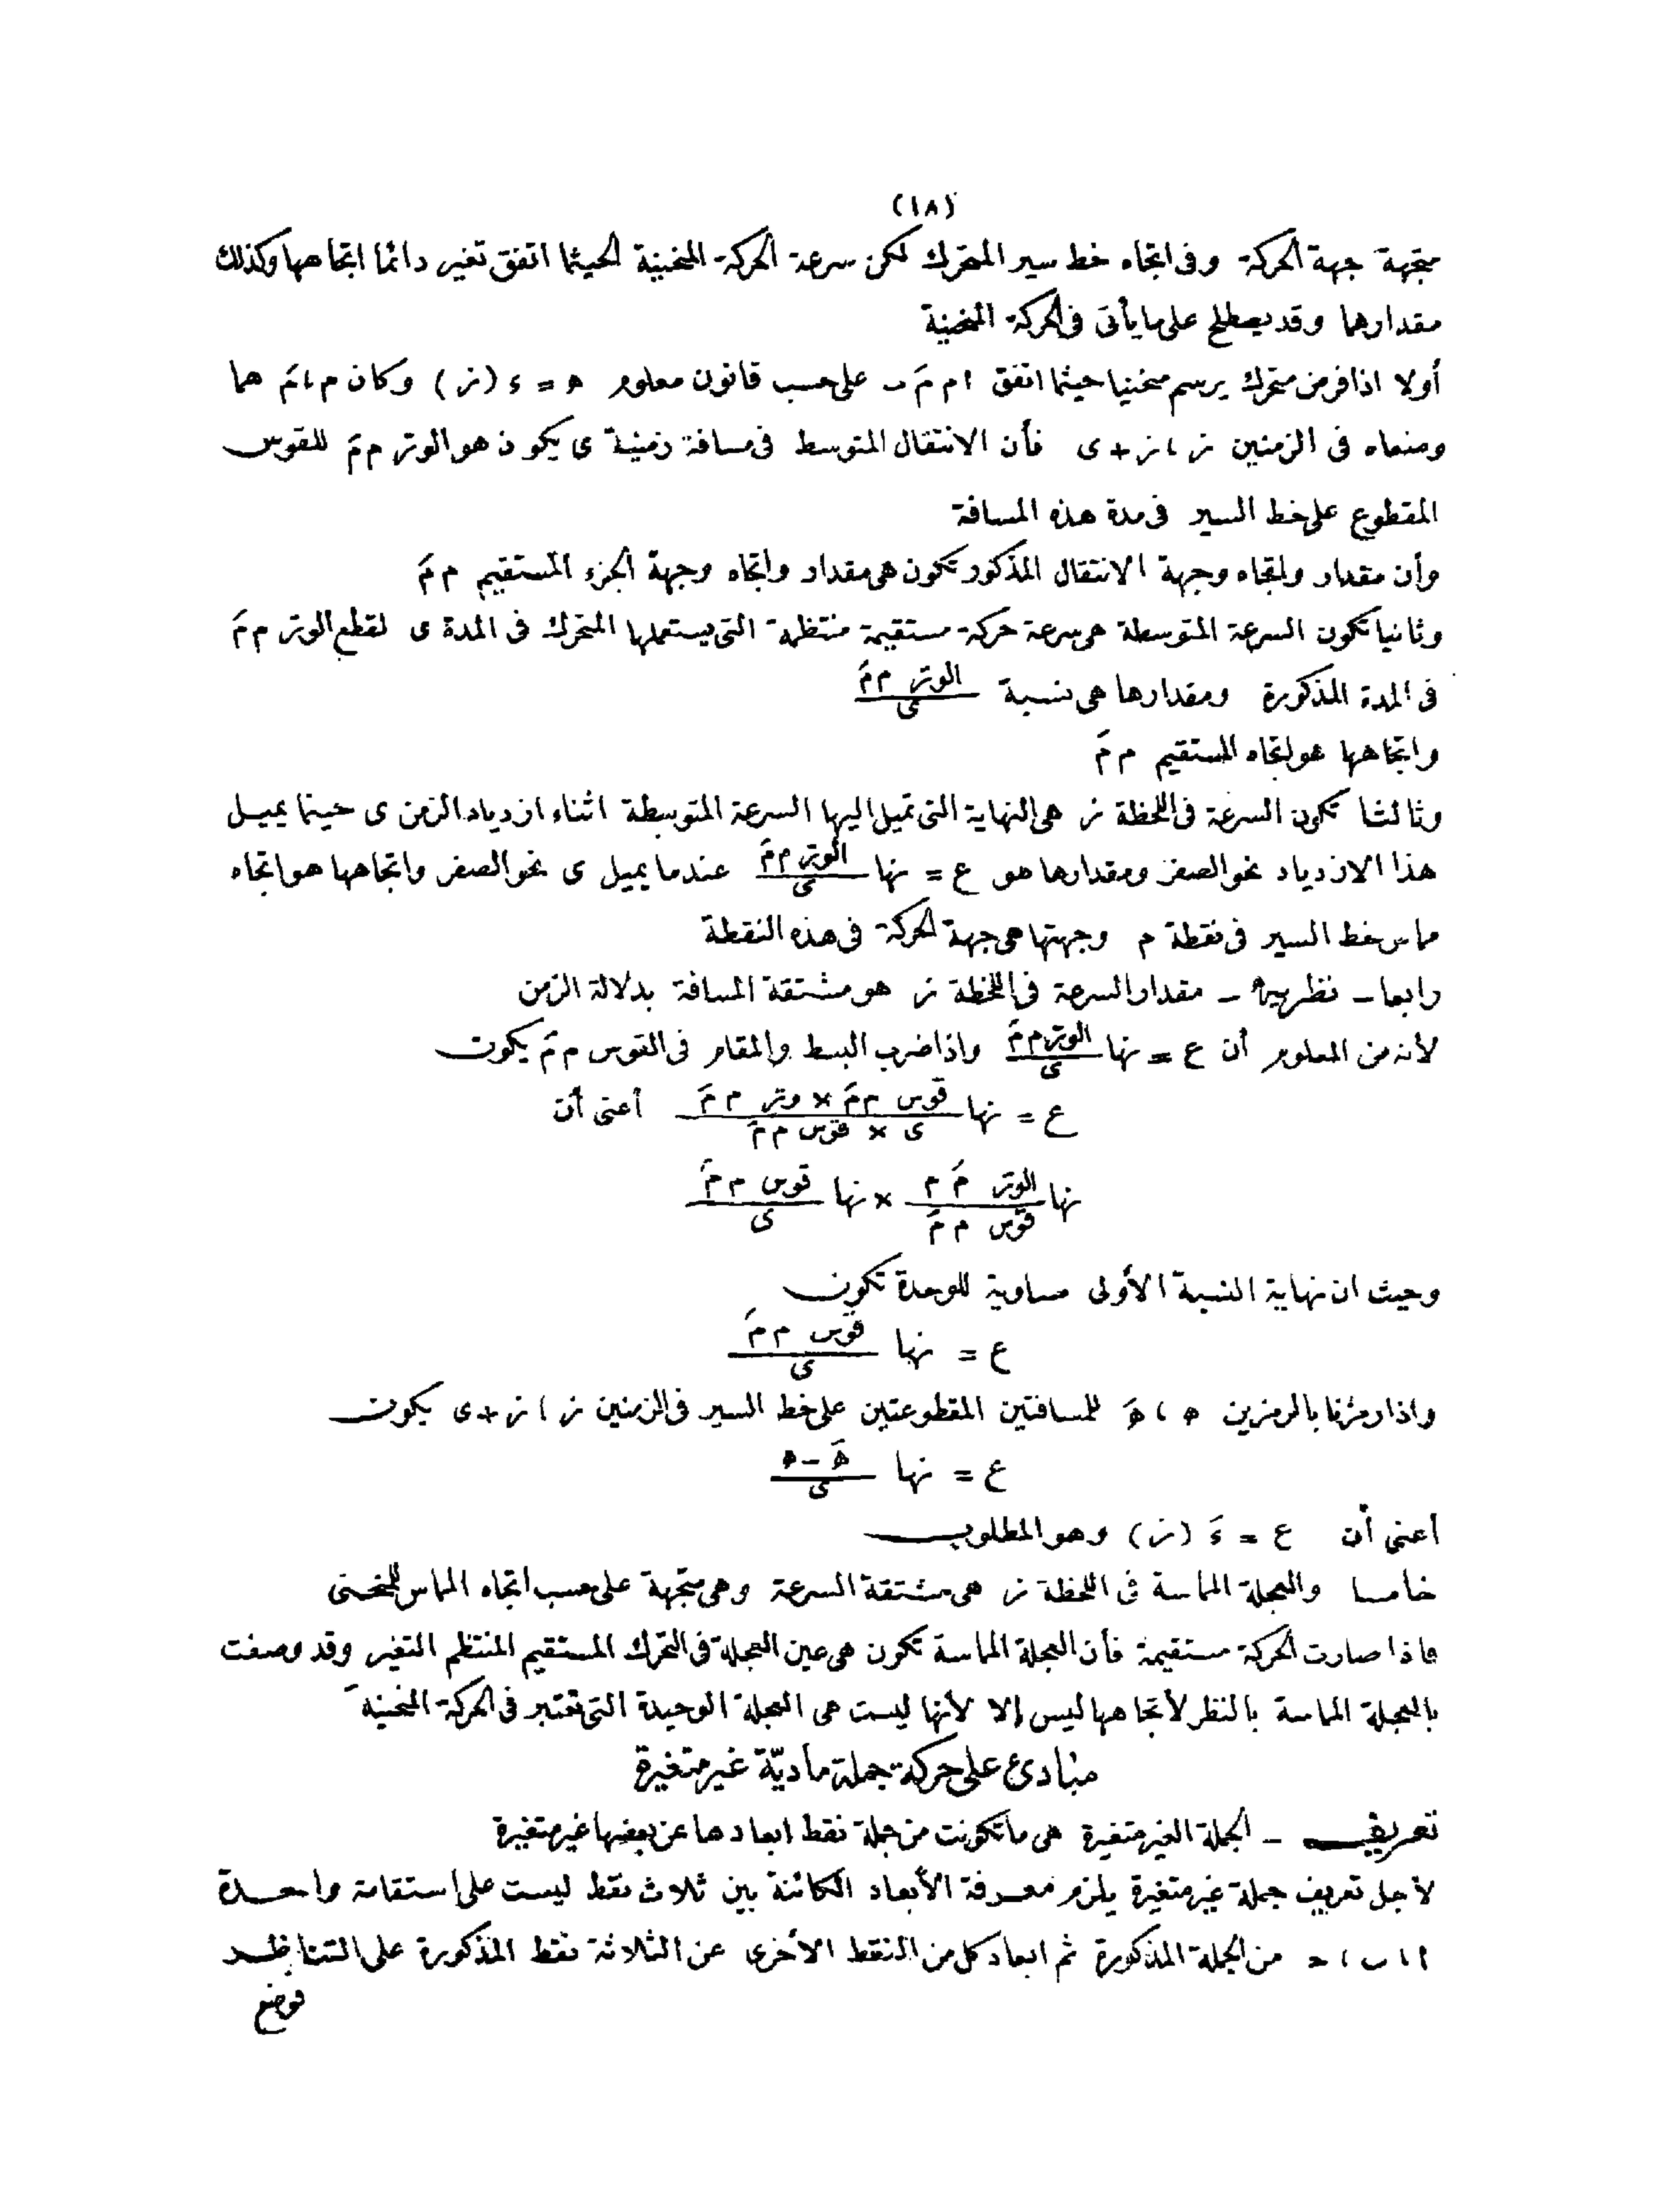 (١٨)
متجهة جهة الحركة وفى اتجاه خط سير المتحرك لكن سرعة الحركة المنحنية الحيثما اتفق تغير دائما اتجاهها وكذلك
مقدارهما وقد يصطلح على ما يأتى فى الحركة المنحنية
أولا اذا فرض متحرك يرسم منحنيا حيثما اتفق ا م مَ ب على حسب قانون معلوم ه = ء (ز) وكان م ، مَ هما
وضعاه فى الزمنين ز ، ز + ى فأن الانتقال المتوسط فى مسافة زمنية ى يكون هو الوتر م مَ للقوس
المقطوع على خط السير فى مدة هذه المسافة
وأن مقدار واتجاه وجهة الانتقال المذكور تكون هى مقدار واتجاه وجهة الجزء المستقيم م مَ
وثانيا تكون السرعة المتوسطة هى سرعة حركة مستقيمة منتظمة التى يستعملها المتحرك فى المدة ى لقطع الوتر م مَ
فى المدة المذكورة ومقدارها هى نسبة الوتر م مَ / ى
واتجاهها هو اتجاه المستقيم م مَ
وثالثا تكون السرعة فى اللحظة ز هى النهاية التى تميل اليها السرعة المتوسطة اثناء ازدياد الزمن ى حينما يميل
هذا الازدياد نحو الصفر ومقدارها هو ع = نها الوتر م مَ / ى عندما يميل ى نحو الصفر واتجاهها هو اتجاه
مماس خط السير فى نقطة م وجهتها هى جهة الحركة فى هذه النقطة
رابعا ـ نظرية ـ مقدار السرعة فى اللحظة ز هو مشتقة المسافة بدلالة الزمن
لأنه من المعلوم أن ع = نها الوتر م مَ / ى واذا ضرب البسط والمقام فى القوس م مَ يكون
ع = نها قوس م مَ × وتر م مَ / ى × قوس م مَ أعنى أن
نها الوتر مَ م / قوس م مَ × نها قوس م مَ / ى
وحيث ان نهاية النسبة الأولى مساوية للوحدة تكون
ع = نها قوس م مَ / ى
واذا رمزنا بالرمزين ه ، هَ للمسافتين المقطوعتين على خط السير فى الزمنين ز ، ز + ى يكون
ع = نها هَ - ه / ى
أعنى أن ع = ءَ (ز) وهو المطلوب
خامسا والعجلة المماسة فى اللحظة ز هى مشتقة السرعة وهى متجهة على حسب اتجاه المماس للمنحنى
فاذا صارت الحركة مستقيمة فأن العجلة المماسة تكون هى عين العجلة فى التحرك المستقيم المنتظم التغير وقد وصفت
بالعجلة المماسة بالنظر لأتجاهها ليس إلا لأنها ليست هى العجلة الوحيدة التى تعتبر فى الحركة المنحنية
مبادئ على حركة جملة ماديّة غير متغيرة
تعريف ـ الجملة الغير متغيرة هى ما تكونت من جملة نقط ابعادها عن بعضها غير متغيرة
لاجل تعريف جملة غير متغيرة يلزم معرفة الأبعاد الكائنة بين ثلاث نقط ليست على استقامة واحدة
ا ، ب ، ح من الجملة المذكورة ثم ابعاد كل من النقط الأخرى عن الثلاثة نقط المذكورة على التناظر
فوضع